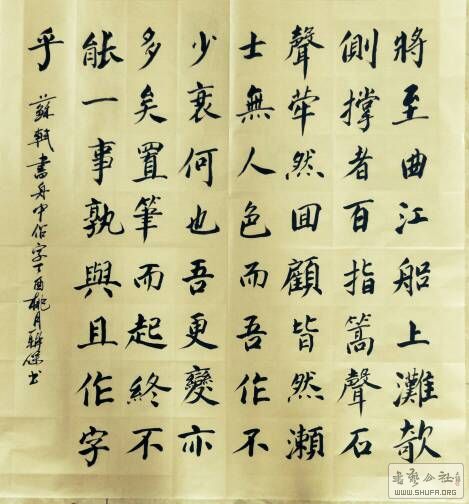 將至曲江船上灘欹
側撐者百指篙聲石
聲犖然囬顧皆然瀨
士無人色而吾作不
少衰何也吾更變亦
多矣置筆而起終不
能一事孰與且作字
乎
蘇軾書舟中作字丁酉桃月书
书艺公社
WWW.SHUFA.ORG